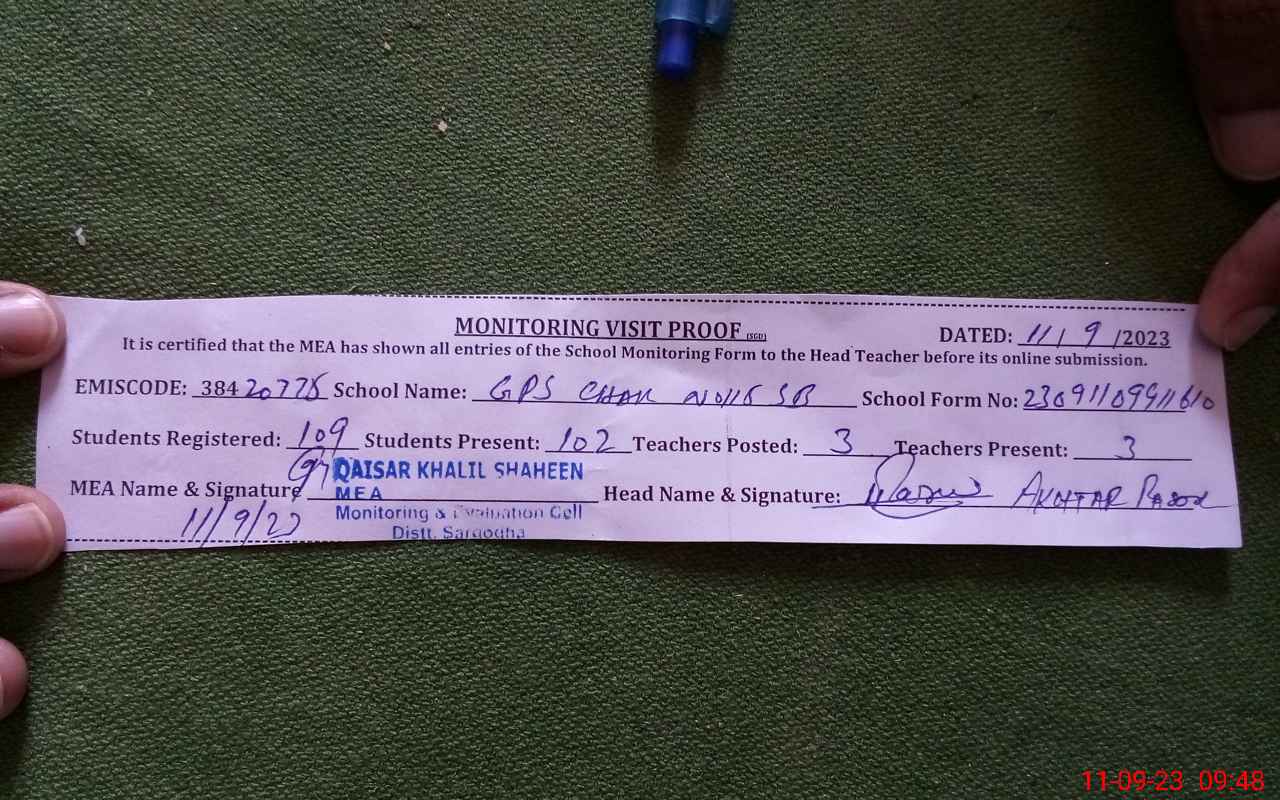 MONITORING VISIT PROOF (SGD) DATED: 11/9/2023
It is certified that the MEA has shown all entries of the School Monitoring Form to the Head Teacher before its online submission.
EMISCODE: 38420775 School Name: GPS CHAK NO 115 SB School Form No:
Students Registered: 109 Students Present: 102 Teachers Posted: 3 Teachers Present: 3
MEA Name & Signature QAISAR KHALIL SHAHEEN Head Name & Signature: AKHTAR RASOOL
MEA
Monitoring & Evaluation Cell
11/9/23 Distt. Sargodha
11-09-23 09:48